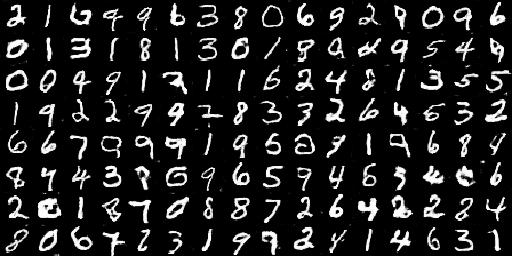 2 1 6 9 9 6 3 8 0 6 9 2 9 0 9 6
0 1 3 1 8 1 3 0 1 8 9 4 9 5 4 9
0 0 4 9 1 2 1 1 6 2 4 8 1 3 5 5
1 9 2 2 9 9 2 8 3 3 2 6 4 5 3 2
6 6 7 0 9 9 1 9 5 3 1 9 6 8 4
8 4 4 3 8 0 9 6 5 9 4 6 3 4 6
2 1 8 7 0 8 8 7 2 6 4 2 2 8 4
8 0 6 7 2 3 1 9 9 2 4 1 4 6 3 1